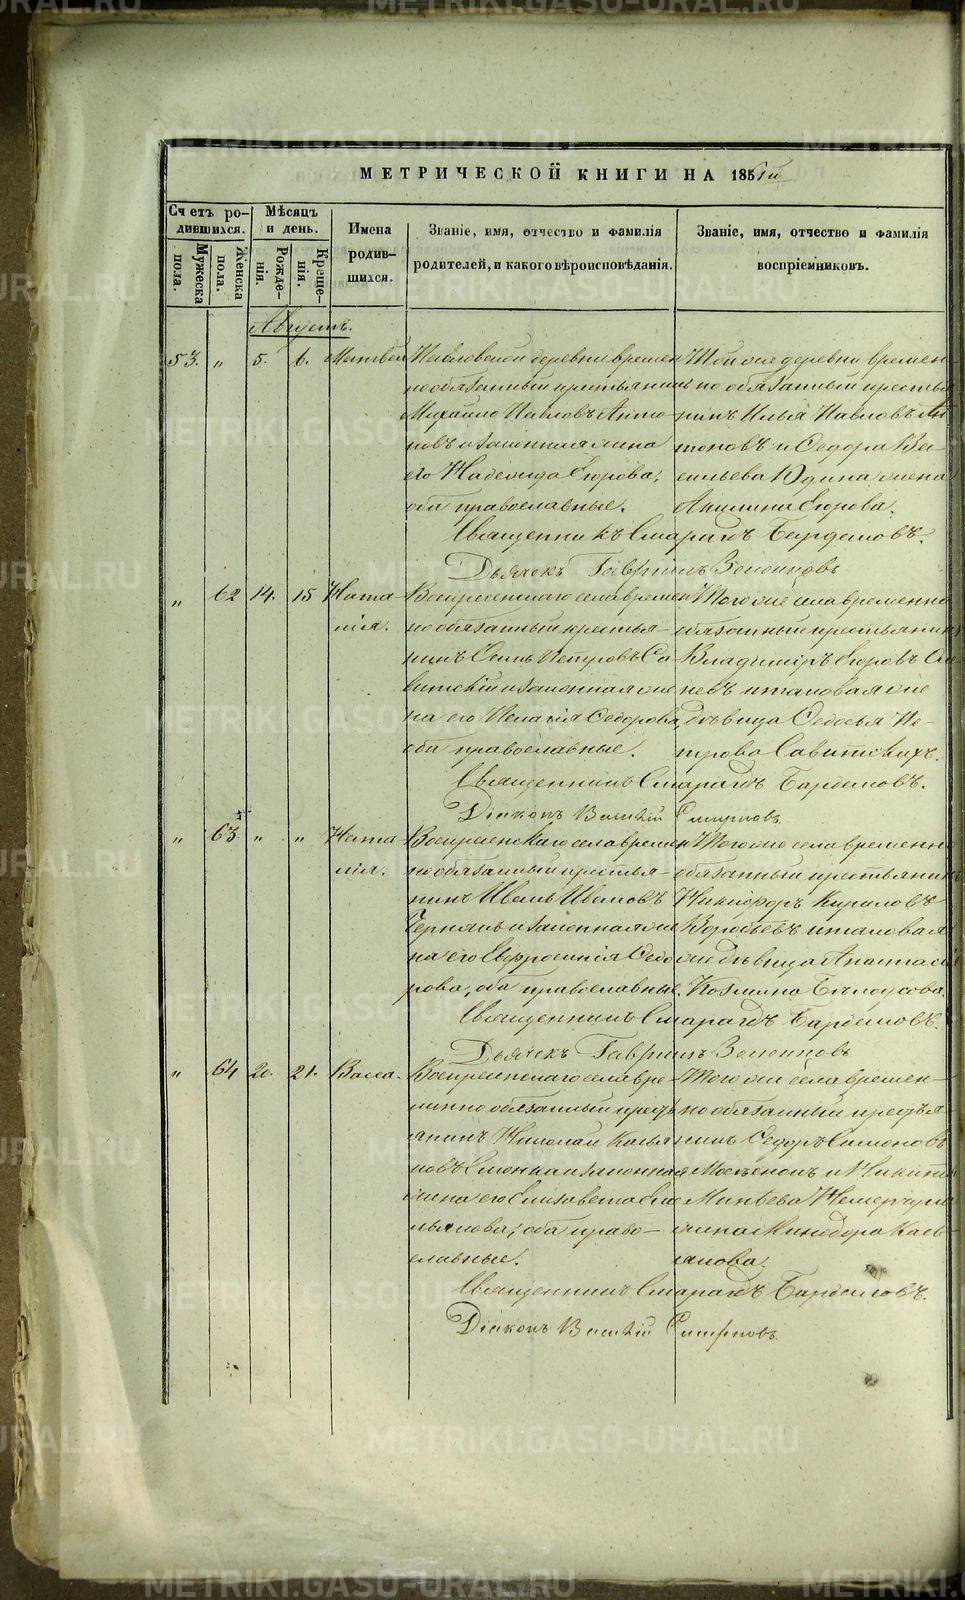 МЕТРИЧЕСКОЙ КНИГИ НА 1861й
Счетъ родившихся.
Мужеска пола.
Женска пола.
Мѣсяцъ и день.
Рожденія.
Крещенія.
Имена родившихся.
Званіе, имя, отчество и фамилія родителей, и какого вѣроисповѣданія.
Званіе, имя, отчество и фамилія воспріемниковъ.
Августъ.
53. " 5. 6. Матвей
Павловской деревни времен
но обязанный крестьянинъ
Михайло Павловъ Анто-
новъ и законная жена
его Надежда Егорова,
оба православные.
Той же деревни времен-
но обязанный крестья
нинъ Илья Павловъ Ан
тоновъ и Федора Ва-
сильева Юдина жена
Акилина Егорова.
Священникъ Смарагдъ Бирдемовъ.
Дьячекъ Гавриилъ Зеленцовъ
" 62 14. 15 Ната-
лія.
Воскресенскаго села времен
но обязанный крестья-
нинъ Осипъ Петровъ Са-
витскій и законная же
на его Пелагія Федорова,
оба православные.
Того же села временно
обязанный крестьянинъ
Владиміръ Егоровъ
невъ и таковая же
дѣвица Федосья Пе-
трова Савитскихъ.
Священникъ Смарагдъ Бирдемовъ.
Діаконъ Василій Смирновъ
" 63. " " Ната
лія.
Воскресенскаго села времен
но обязанный крестья-
нинъ Иванъ Ивановъ
и законная же
на его Евфросинія Федо
рова, оба православные.
Того же села временно
обязанный крестьянинъ
Никифоръ Кириловъ
Воробьевъ и таковая
же дѣвица Анастасія
Козмина Бѣлоусова.
Священникъ Смарагдъ Бирдемовъ.
Дьячекъ Гавриилъ Зеленцовъ
" 64 20. 21. Васса.
Воскресенскаго села вре-
менно обязанный крест
янинъ Николай Касья
новъ и законная
жена его Елизавета Еме
льянова, оба право-
славные.
Того же села времен-
но обязанный крестья
нинъ Федоръ Симоновъ
и Никиты
Матвѣева
жена Минодора Кась
янова.
Священникъ Смарагдъ Бирдемовъ.
Діаконъ Василій Смирновъ
METRIKI.GASO-URAL.RU